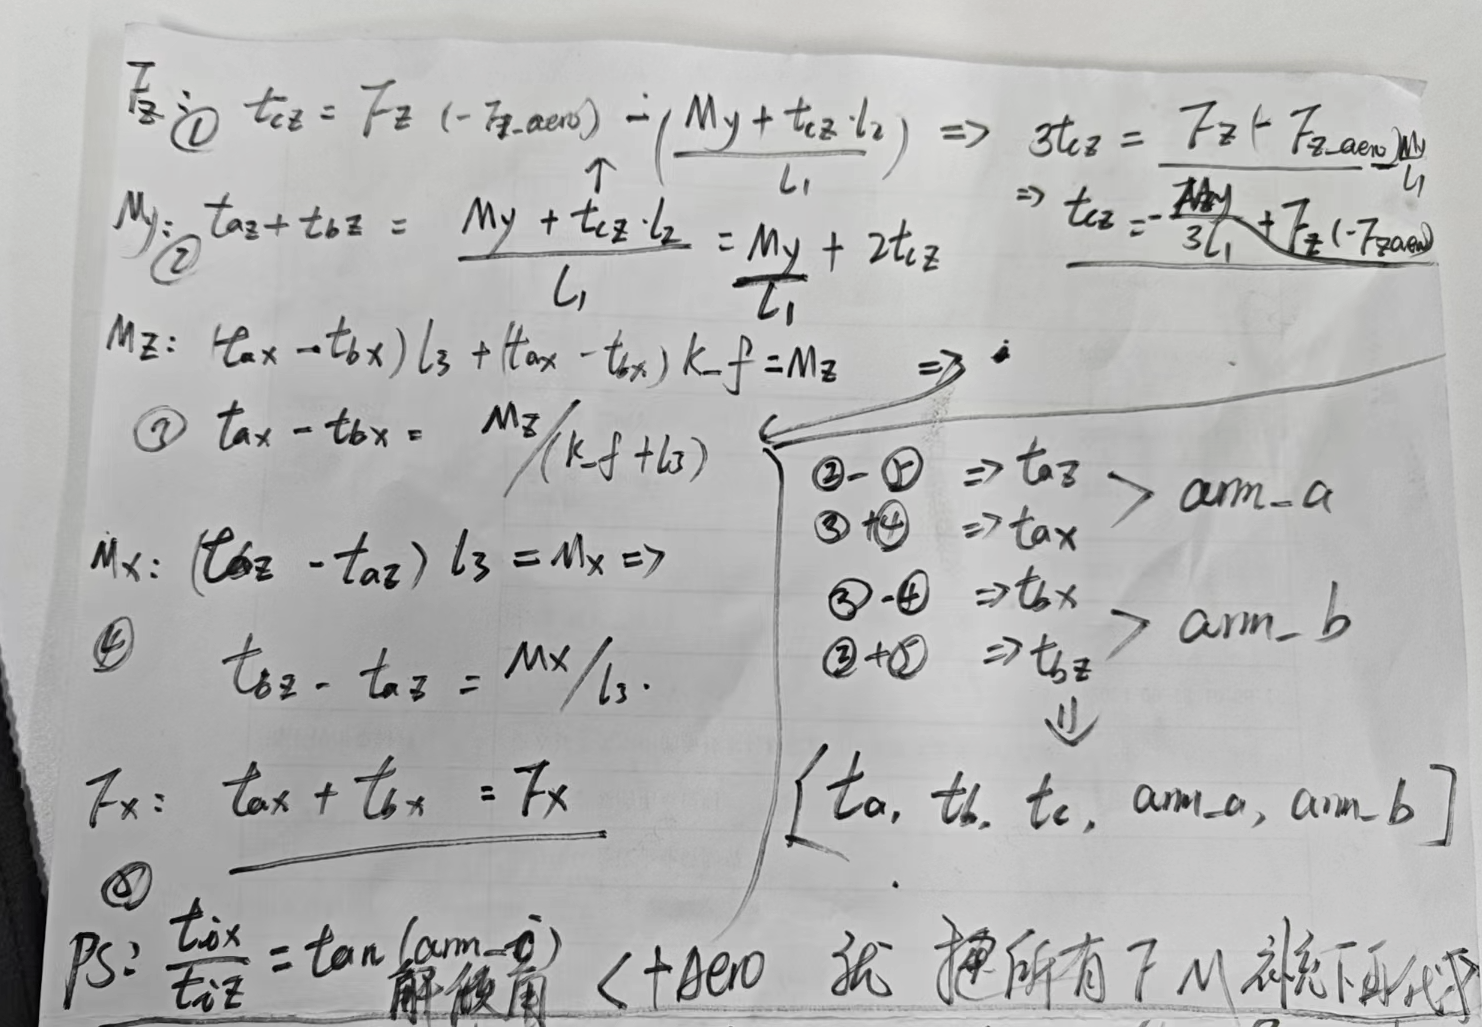 Fz: ① tcz = Fz (-Fz_aero) - (My + tcz·l2 / l1) => 3tcz = Fz (-Fz_aero) - My/l1
=> tcz = - My/3l1 + Fz (-Fzaero)
My: ② taz + tbz = My + tcz·l2 / l1 = My/l1 + 2tcz
Mz: (tax - tbx) l3 + (tax - tbx) k_f = Mz =>
③ tax - tbx = Mz/(k_f + l3)
Mx: (tbz - taz) l3 = Mx =>
④ tbz - taz = Mx/l3.
Fx: tax + tbx = Fx
⑤
②-⑤ => taz
③+④ => tax
> arm_a
③-④ => tbx
②+⑤ => tbz
> arm_b
⇓
[ta, tb, tc, arm_a, arm_b]
PS: tix/tiz = tan(arm_i)
解倾角 <+Aero 就 把所有FM补充下再代>